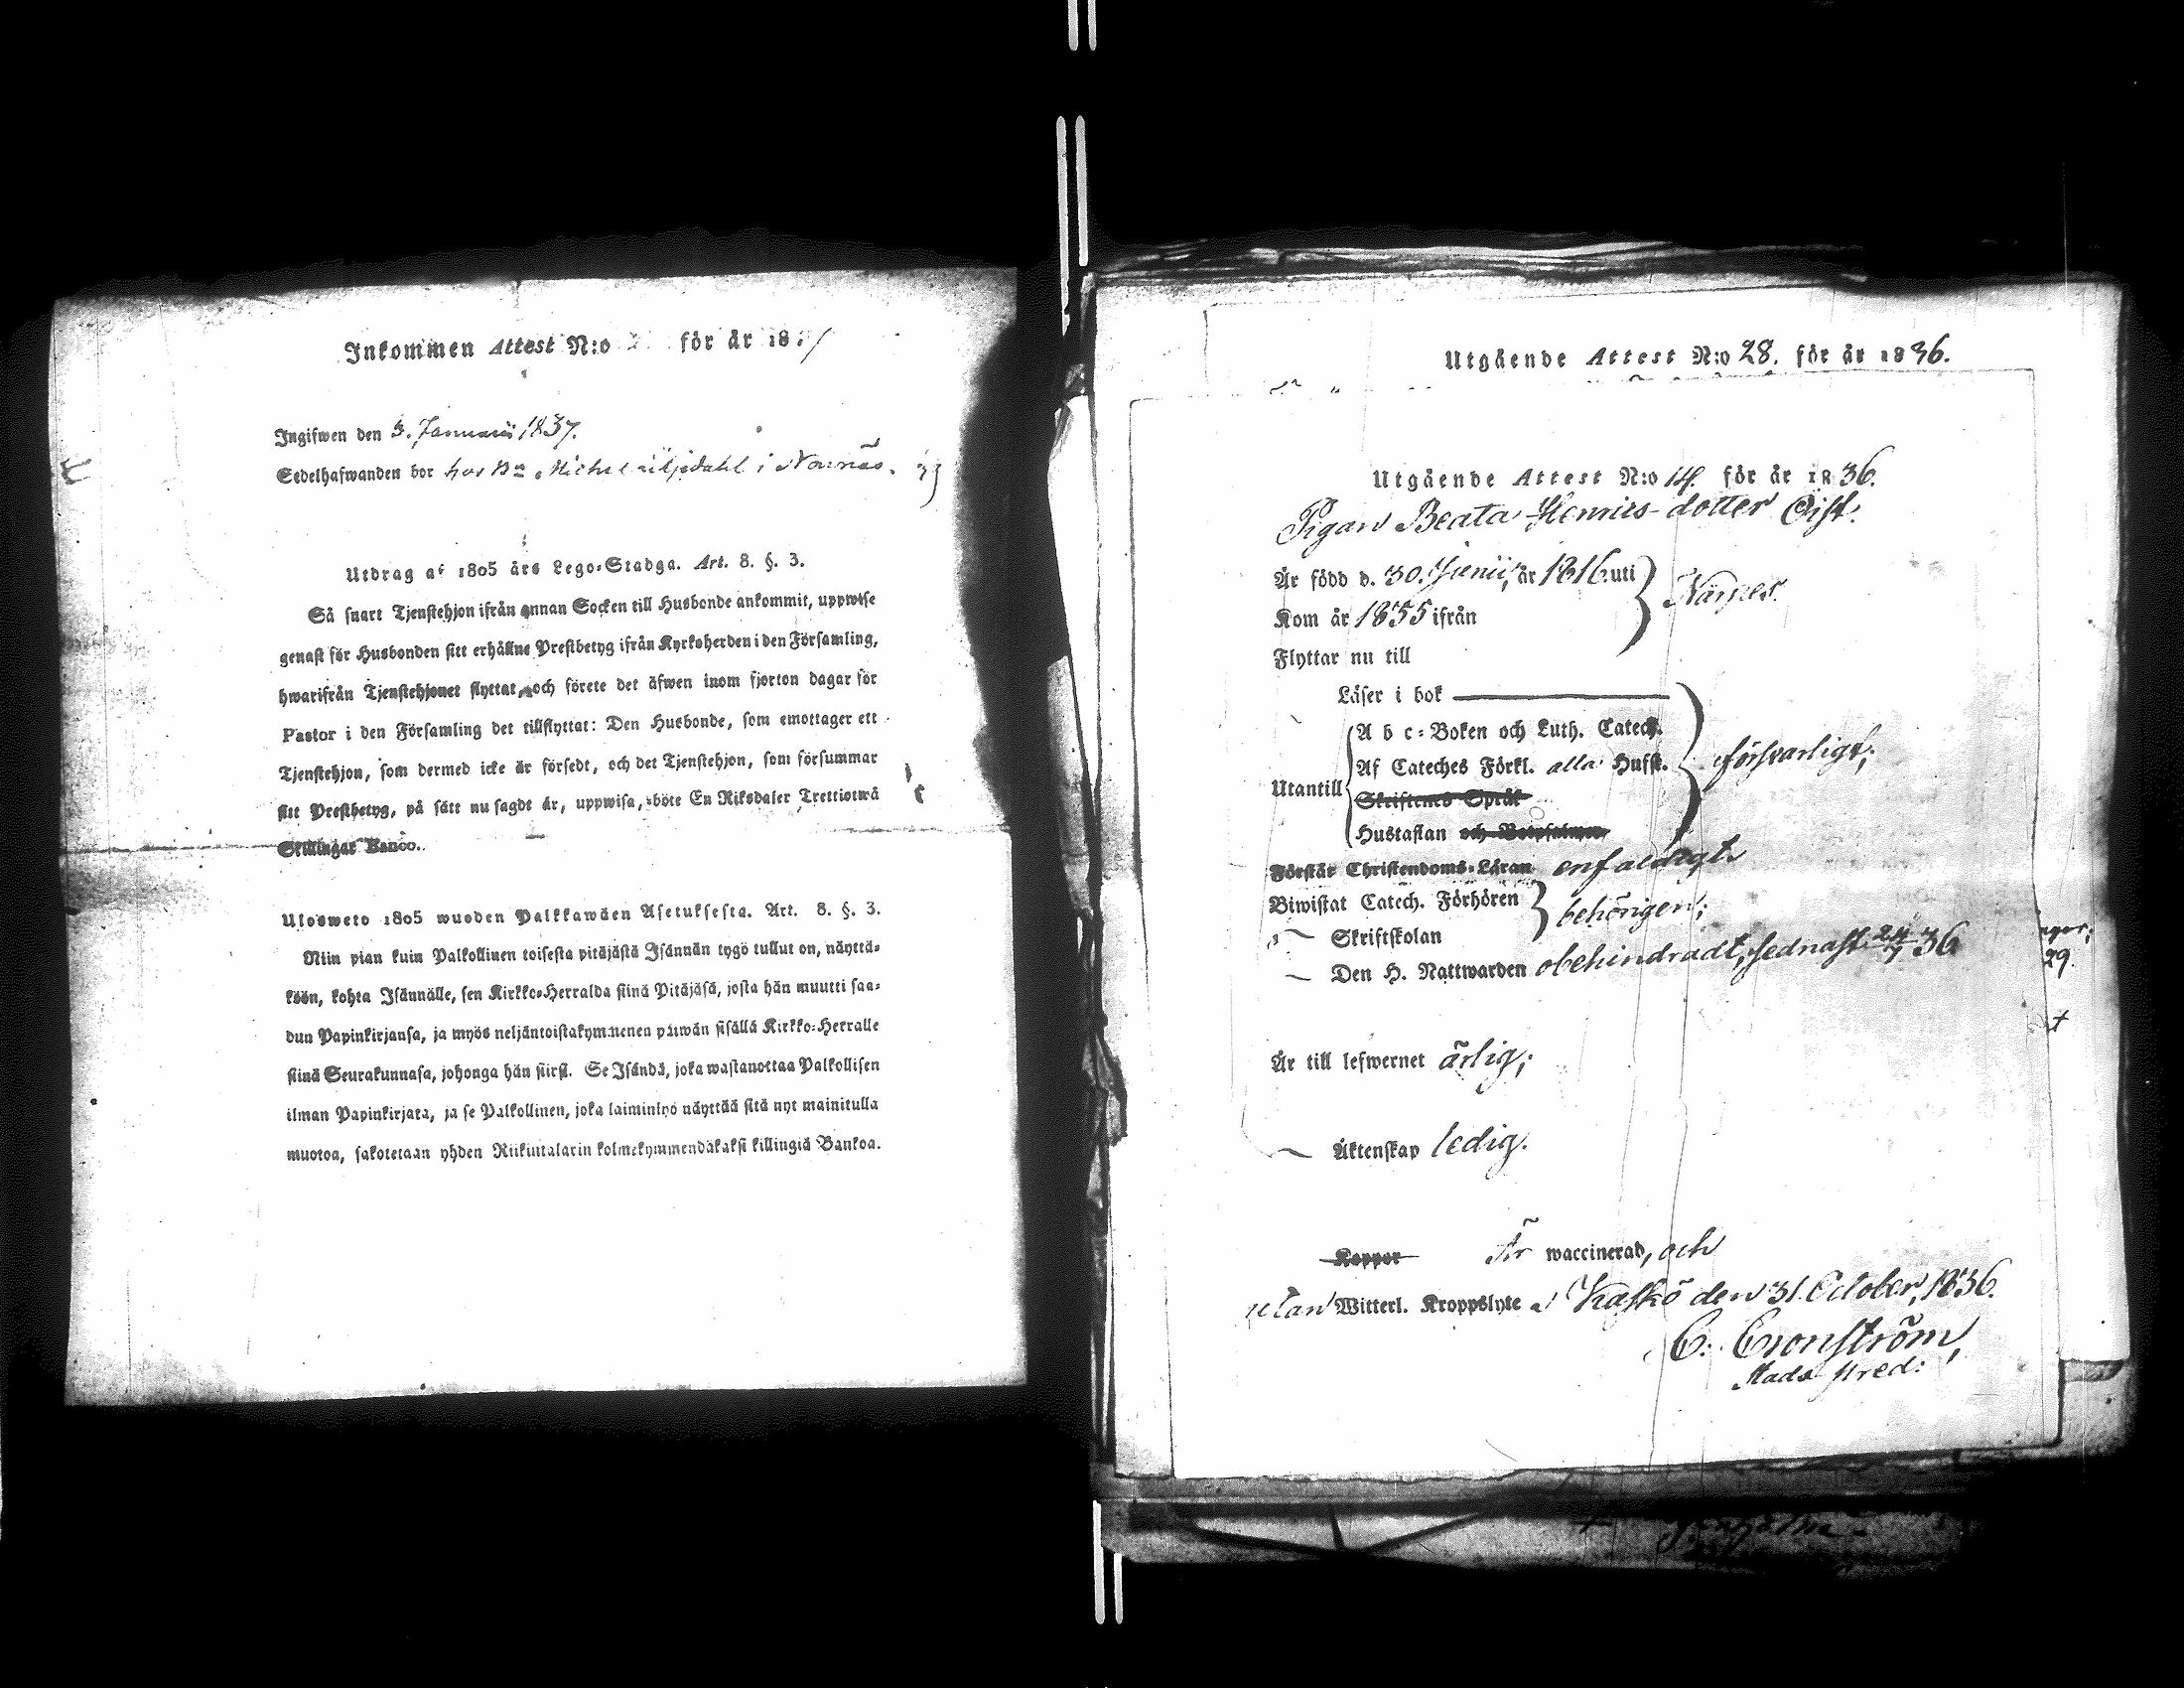 Inkommen Attest N:o för år 18
Ingifwen den 3. Januarii 1837.
Sedelhafwanden bor hos Bn Michel i Nornäs.
Utdrag af 1805 års Lego-Stadga. Art. 8. §. 3.
Så snart Tjenstehjon ifrån annan Socken till Husbonde ankommit, uppwise
genast för Husbonden sitt erhållne Prestbetyg ifrån Kyrkoherden i den Församling,
hwarifrån Tjenstehjonet flyttat, och förete det äfwen inom fjorton dagar för
Pastor i den Församling det tillflyttat: Den Husbonde, som emottager ett
Tjenstehjon, som dermed icke är försedt, och det Tjenstehjon, som försummar
sitt Prestbetyg, på sätt nu sagdt är, uppwisa, böte En Riksdaler Trettiotwå
Skillingar Banco.
Ulosweto 1805 wuoden Palkkawäen Asetuksesta. Art. 8. §. 3.
Niin pian kuin Palkollinen toisesta pitäjästä Isännän tygö tullut on, näyttä-
köön, kohta Isännälle, sen Kirkko-Herralda siinä Pitäjäsä, josta hän muutti saa-
dun Papinkirjansa, ja myös neljäntoistakymmenen päiwän sisällä Kirkko-Herralle
siinä Seurakunnasa, johonga hän siirsi. Se Isändä, joka wastanottaa Palkollisen
ilman Papinkirjata, ja se Palkollinen, joka laiminlyö näyttää sitä nyt mainitulla
muotoa, sakotetaan yhden Riikintalarin kolmekymmendäkaksi killingiä Bankoa.
Utgående Attest N:o 28. för år 1836.
Utgående Attest N:o 14. för år 1836.
Pigan Beata Henrics-dotter Öist.
Är född d. 30. Junii, år 1816. uti
Kom år 1835 ifrån
Närpes.
Flyttar nu till
Läser i bok
A b c-Boken och Luth. Catech.
Af Cateches Förkl. alla Hufst.
Utantill
försvarligt;
Skriftenes Språk
Hustaflan och Botpsalmen
Förstår Christendoms-Läran enfaldigt
Biwistat Catech. Förhören
behörigen;
Skriftskolan
Den H. Nattwarden obehindradt, sednast 24/7 36
29.
Är till lefwernet ärlig;
Äktenskap ledig.
Koppor Är waccinerad, och
utan Witterl. Kroppslyte Kaskö den 31. October, 1836.
C. Cronström,